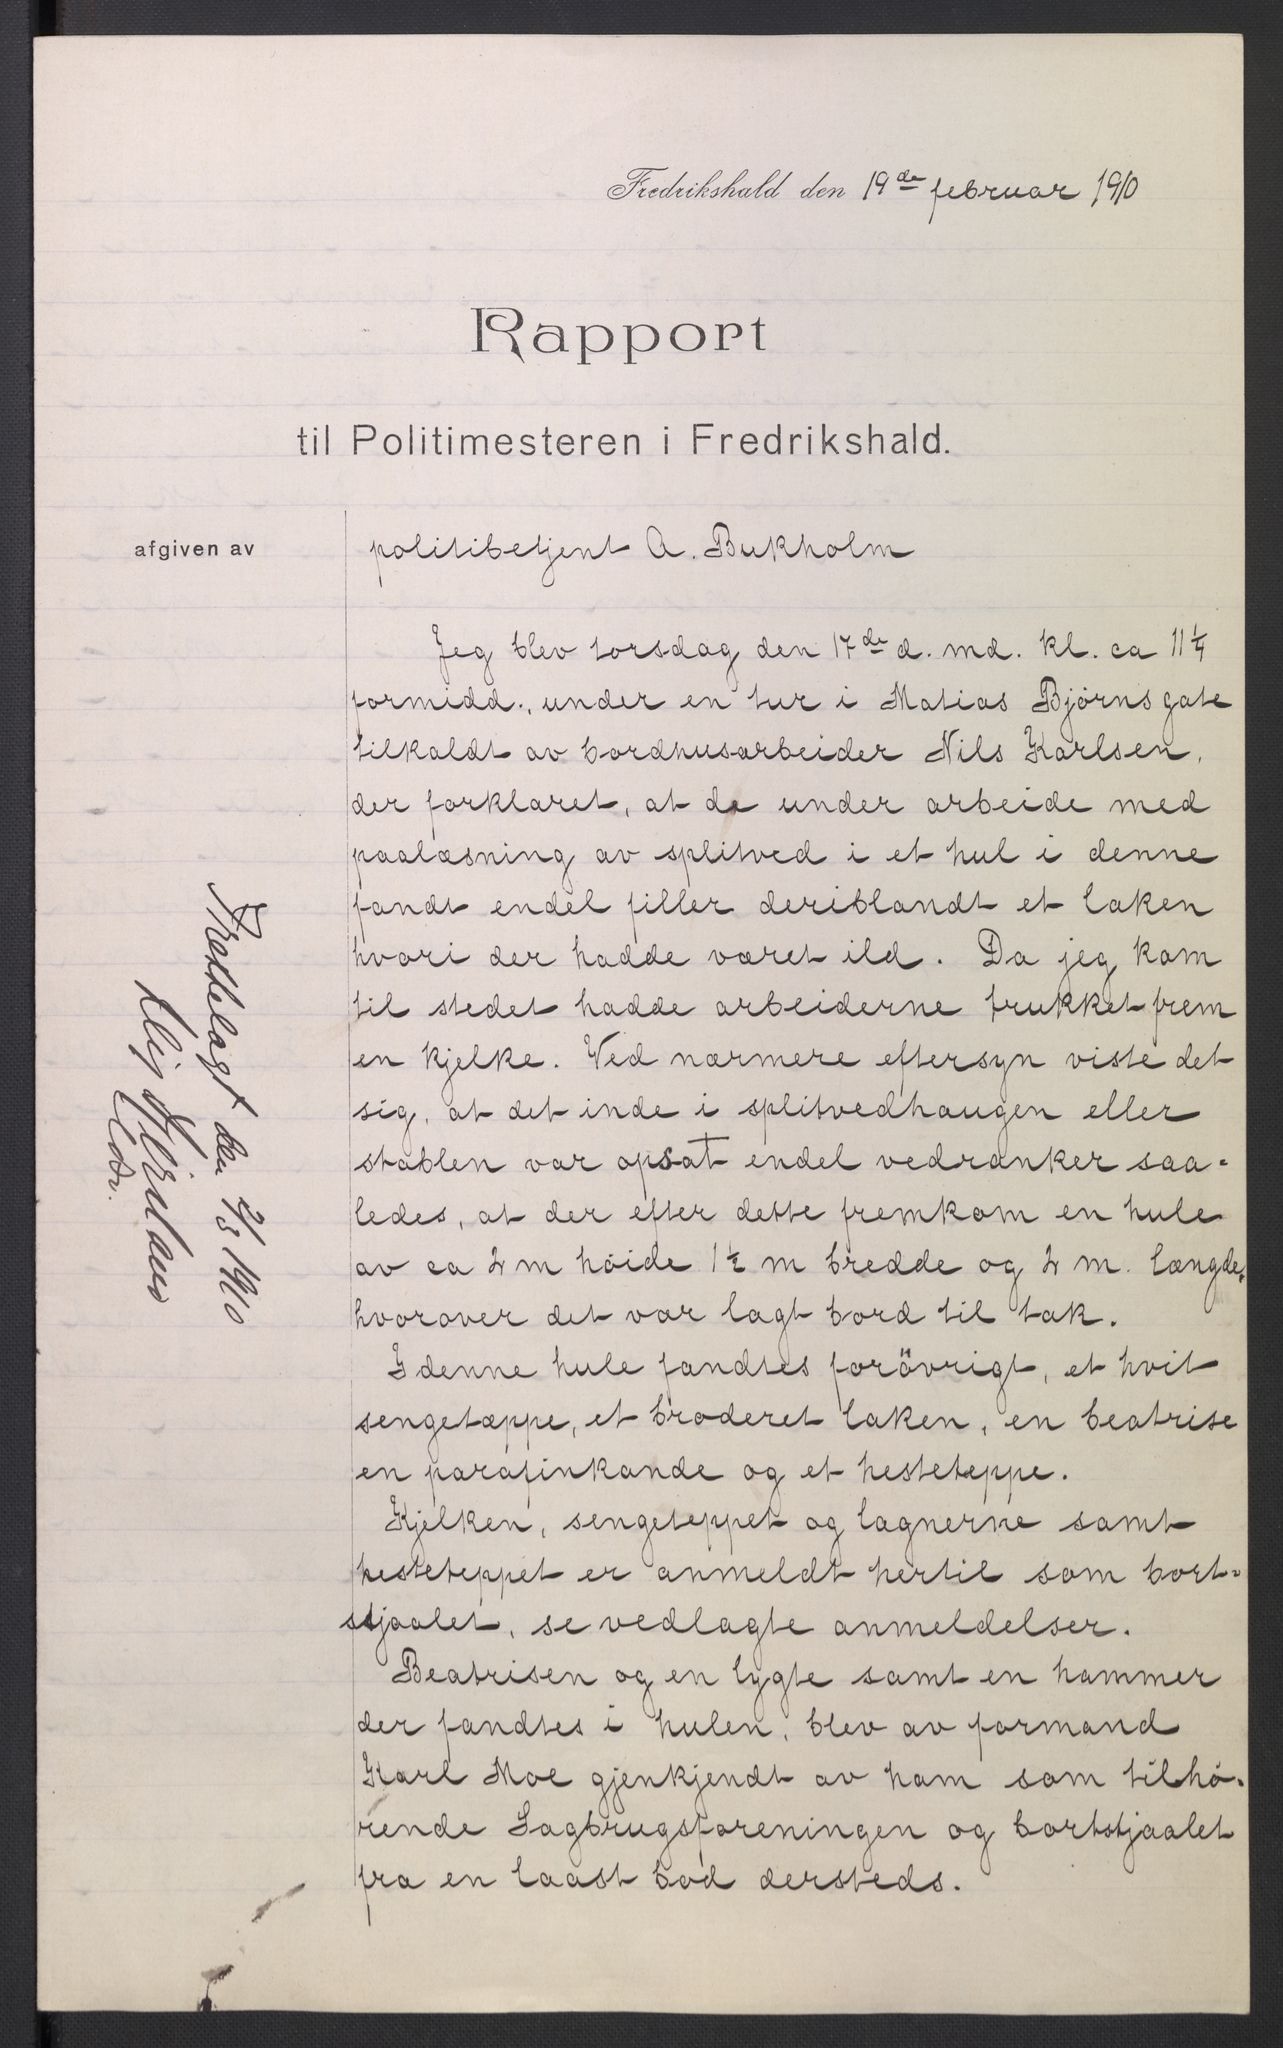 Fredrikshald den 19de februar 1910
Rapport
til Politimesteren i Fredrikshald.
afgiven av
politibetjent A. Bukholm
Jeg blev torsdag den 17de d. md. kl. ca 11 1/4
formidd., under en tur i Matias Bjørns gate
tilkaldt av bordhusarbeider Nils Karlsen,
der forklaret, at de under arbeide med
paalæsning av splitved i et hul i denne
fandt endel filler deriblandt et laken
hvori der hadde været ild. Da jeg kom
til stedet hadde arbeiderne trukket frem
en kjelke. Ved nærmere eftersyn viste det
sig, at det inde i splitvedhaugen eller
stablen var opsat endel vedranker saa-
ledes, at der efter dette fremkom en hule
av ca 2 m høide 1 1/2 m bredde og 2 m. længde,
hvorover det var lagt bord til tak.
I denne hule fandtes forövrigt, et hvit
sengetæppe, et broderet laken, en beatrise
en parafinkande og et hesteteppe.
Kjelken, sengeteppet og lagnerne samt
hesteteppet er anmeldt hertil som bort-
stjaalet, se vedlagte anmeldelser.
Beatrisen og en lygte samt en hammer
der fandtes i hulen, blev av formand
Karl Moe gjenkjendt av ham som tilhø-
rende Sagbrugsforeningen og bortstjaalet
fra en laast bod dersteds.
den 2/3 1910